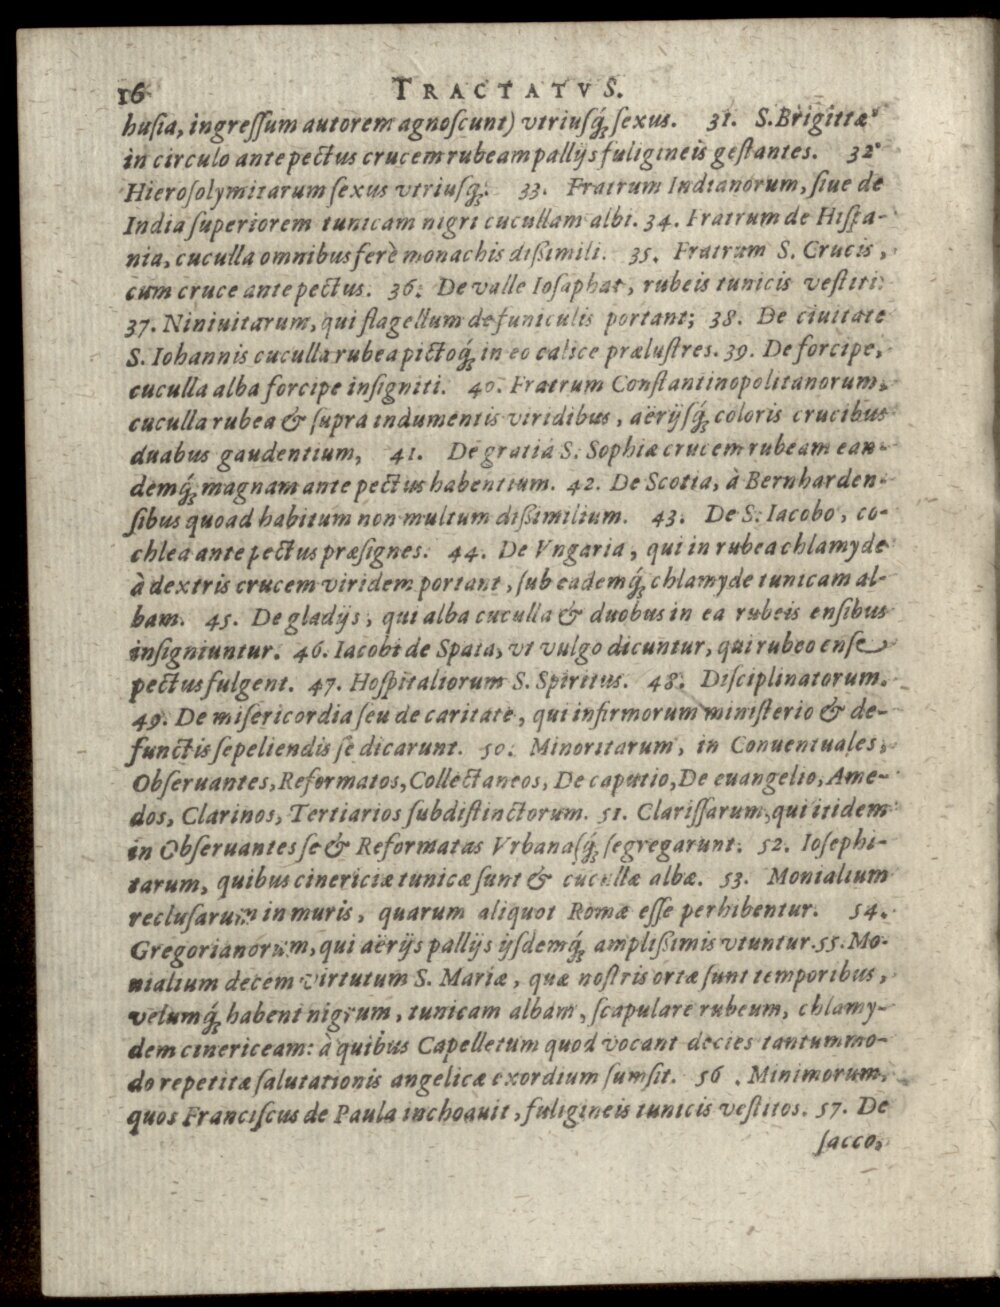 16 TRACTATVS.
husia, ingressum autorem agnoscunt) vtriusq́; sexus. 31. S. Brigittæ
in circulo ante pectus crucem rubeam pallijs fuligineis gestantes. 32
Hierosolymitarum sexus vtriusq́;. 33. Fratrum Indianorum, siue de
India superiorem tunicam nigri cucullam albi. 34. Fratrum de Hispa-
nia, cuculla omnibus ferè monachis dißimili. 35. Fratrum S. Crucis,
cum cruce ante pectus. 36. De valle Iosaphat, rubeis tunicis vestiti.
37. Niniuitarum, qui flagellum de funiculis portant; 38. De ciuitate
S. Iohannis cuculla rubea pictoq́; in eo calice prælustres. 39. De forcipe,
cuculla alba forcipe insigniti. 40. Fratrum Constantinopolitanorum,
cuculla rubea & supra indumentis viridibus, aërijsq́; coloris crucibus
duabus gaudentium, 41. De gratia S. Sophiæ crucem rubeam ean-
demq́; magnam ante pectus habentium. 42. De Scotia, à Bernharden-
sibus quoad habitum non multum dißimilium. 43. De S. Iacobo, co-
chlea ante pectus præsignes. 44. De Vngaria, qui in rubea chlamyde
à dextris crucem viridem portant, sub eademq́; chlamyde tunicam al-
bam. 45. De gladijs, qui alba cuculla & duobus in ea rubeis ensibus
insigniuntur. 46. Iacobi de Spata, vt vulgo dicuntur, qui rubeo ense
pectus fulgent. 47. Hospitaliorum S. Spiritus. 48. Disciplinatorum.
49. De misericordia seu de caritate, qui infirmorum ministerio & de-
functis sepeliendis se dicarunt. 50. Minoritarum, in Conuentuales,
Obseruantes, Reformatos, Collectaneos, De caputio, De euangelio, Ame-
dos, Clarinos, Tertiarios subdistinctorum. 51. Clarissarum, qui itidem
in Obseruantes se & Reformatas Vrbanasq́; segregarunt. 52. Iosephi-
tarum, quibus cinericiæ tunicæ sunt & cucullæ albæ. 53. Monialium
reclusarum in muris, quarum aliquot Romæ esse perhibentur. 54.
Gregorianorum, qui aërijs pallijs ijsdemq́; amplißimis vtuntur. 55. Mo-
nialium decem virtutum S. Mariæ, quæ nostris ortæ sunt temporibus,
velumq́; habent nigrum, tunicam albam, scapulare rubeum, chlamy-
dem cinericeam: à quibus Capelletum quod vocant decies tantummo-
do repetitæ salutationis angelicæ exordium sumsit. 56. Minimorum,
quos Franciscus de Paula inchoauit, fuligineis tunicis vestitos. 57. De
sacco,